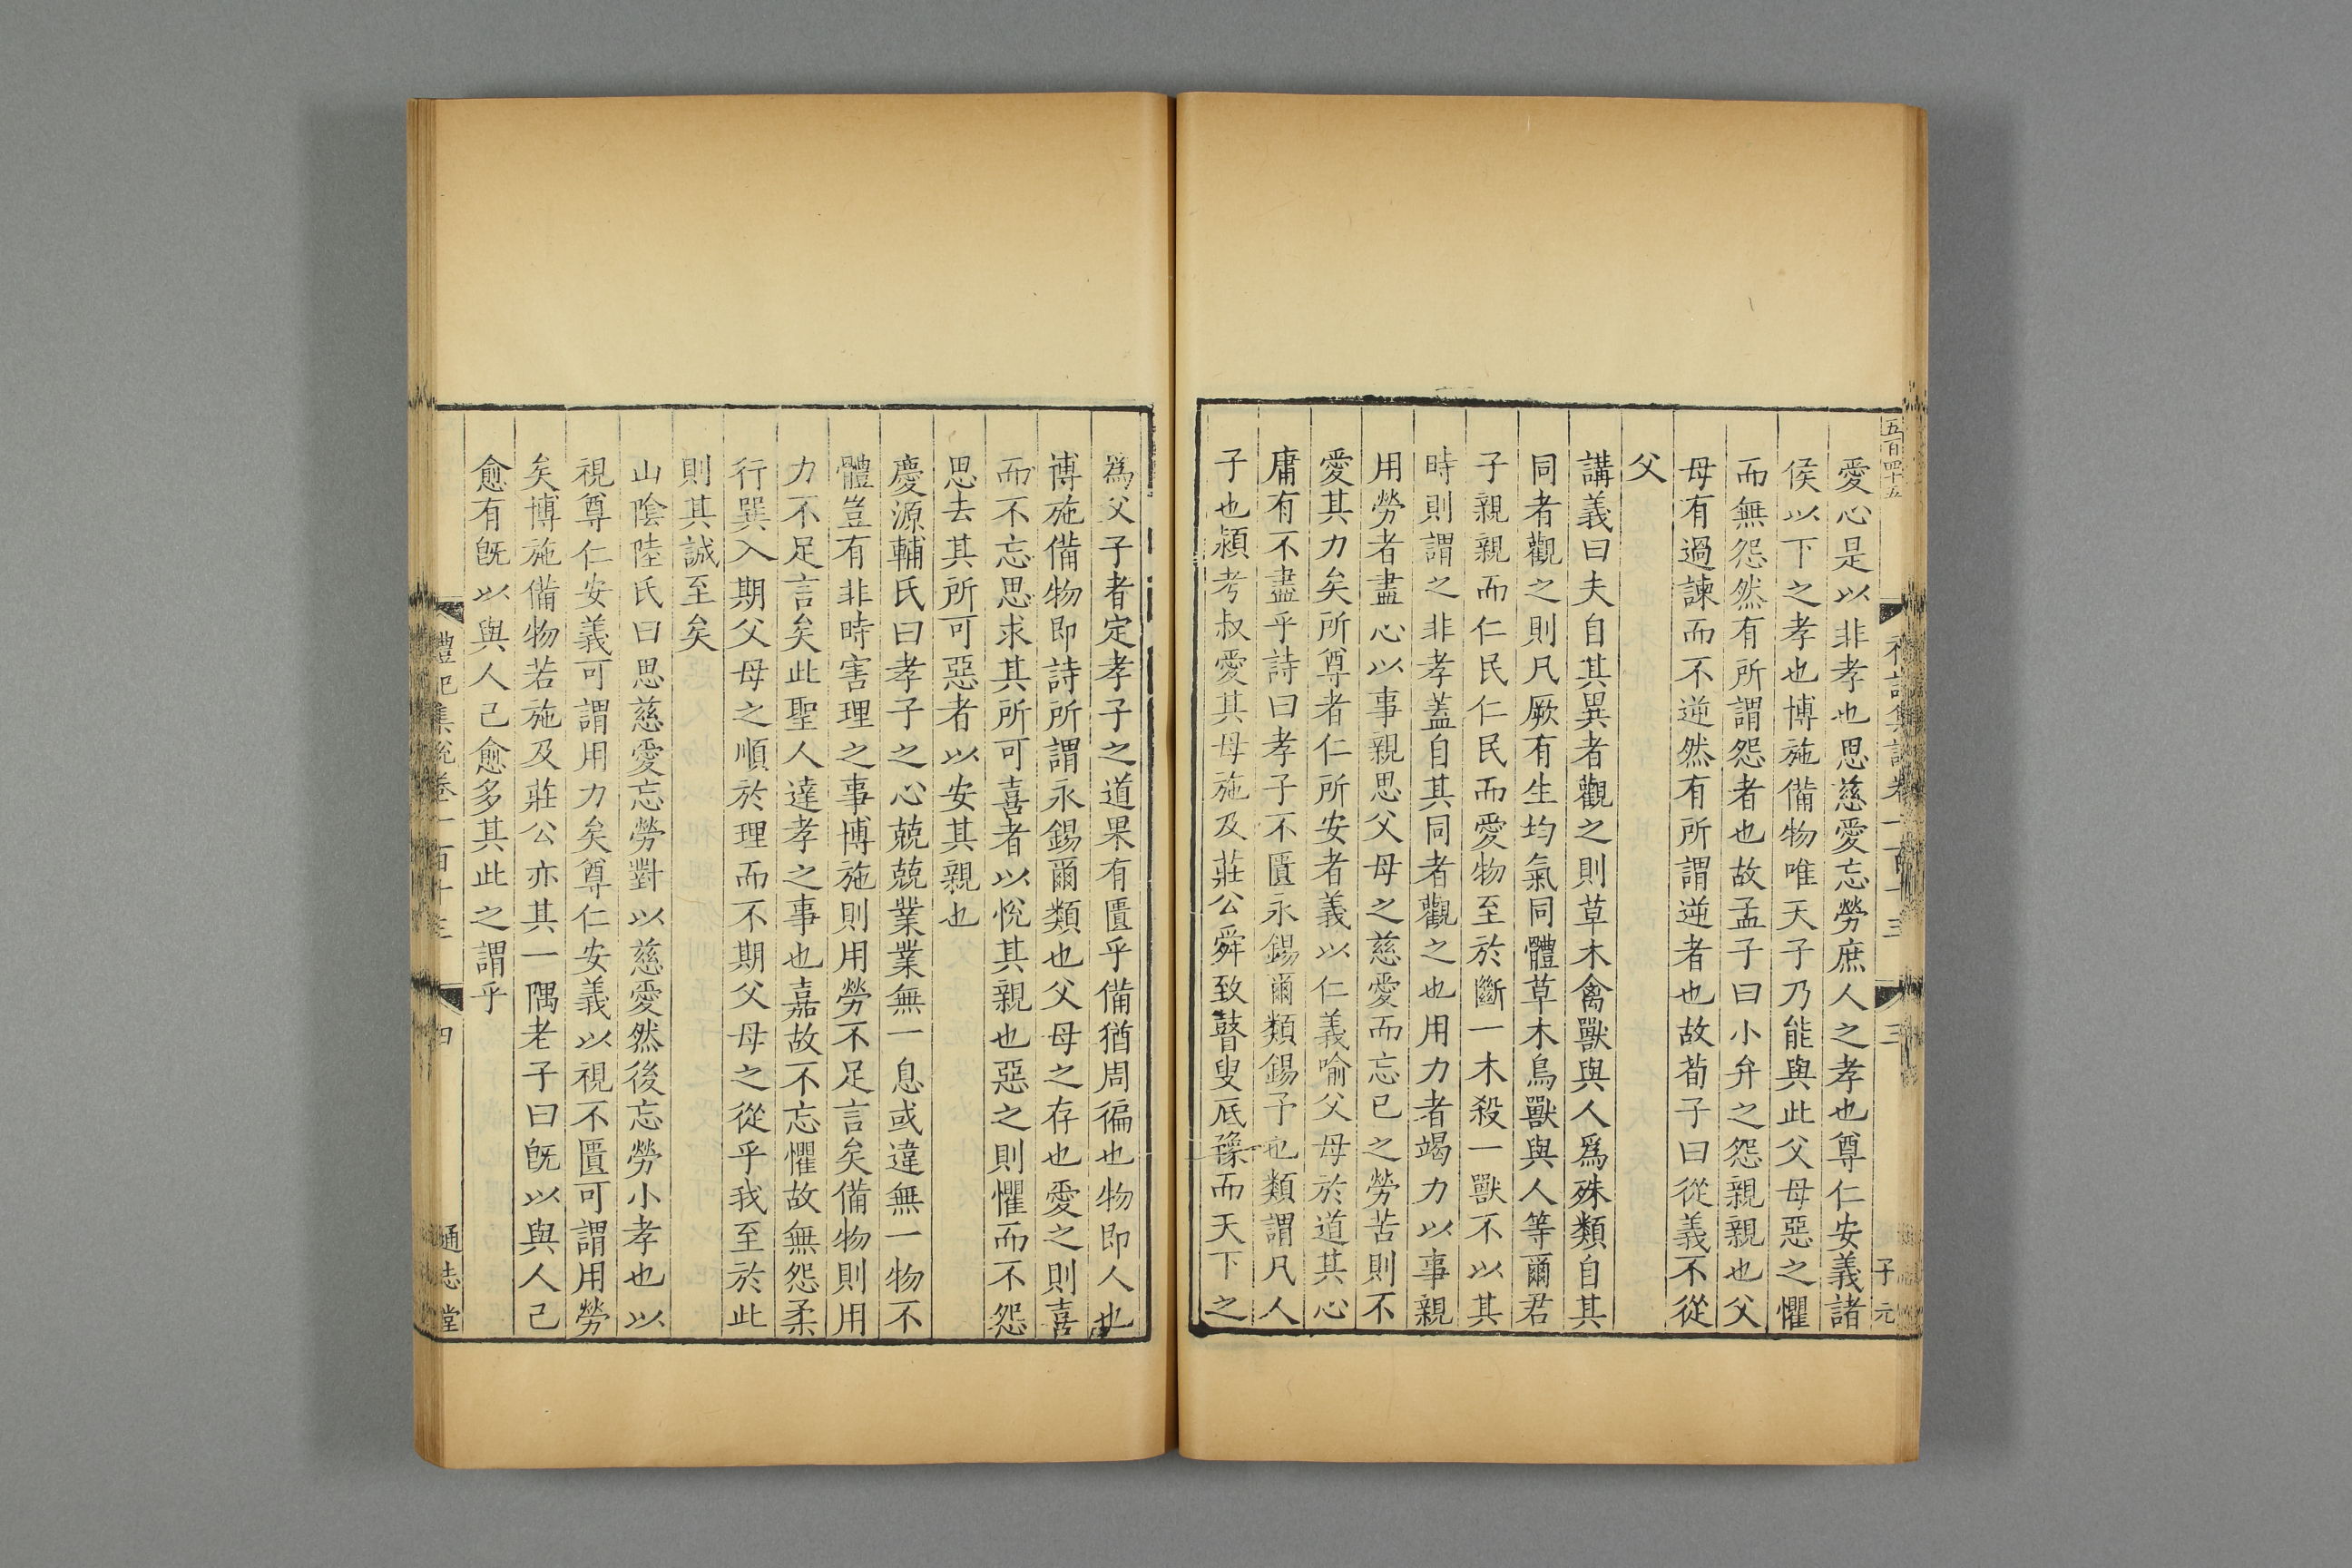 五百四十五
禮記集說卷一百十三
三
子元
愛心是以非孝也思慈愛忘勞庶人之孝也尊仁安義諸
侯以下之孝也博施備物唯天子乃能與此父母惡之懼
而無怨然有所謂怨者也故孟子曰小弁之怨親親也父
母有過諫而不逆然有所謂逆者也故荀子曰從義不從
父
講義曰夫自其異者觀之則草木禽獸與人爲殊類自其
同者觀之則凡厥有生均氣同體草木鳥獸與人等爾君
子親親而仁民仁民而愛物至於斷一木殺一獸不以其
時則謂之非孝蓋自其同者觀之也用力者竭力以事親
用勞者盡心以事親思父母之慈愛而忘已之勞苦則不
愛其力矣所尊者仁所安者義以仁義喻父母於道其心
庸有不盡乎詩曰孝子不匱永錫爾類錫予也類謂凡人
子也潁考叔愛其母施及莊公舜致瞽叟厎豫而天下之
爲父子者定孝子之道果有匱乎備猶周徧也物即人也
博施備物即詩所謂永錫爾類也父母之存也愛之則喜
而不忘思求其所可喜者以悅其親也惡之則懼而不怨
思去其所可惡者以安其親也
慶源輔氏曰孝子之心兢兢業業無一息或違無一物不
體豈有非時害理之事博施則用勞不足言矣備物則用
力不足言矣此聖人達孝之事也嘉故不忘懼故無怨柔
行巽入期父母之順於理而不期父母之從乎我至於此
則其誠至矣
山陰陸氏曰思慈愛忘勞對以慈愛然後忘勞小孝也以
視尊仁安義可謂用力矣尊仁安義以視不匱可謂用勞
矣博施備物若施及莊公亦其一隅老子曰旣以與人己
愈有旣以與人己愈多其此之謂乎
禮記集說卷一百十三
四
通志堂